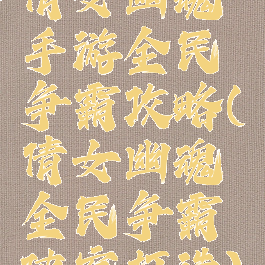 倩女幽魂
手游全民
争霸攻略(
倩女幽魂
全民争霸
破案攻略)